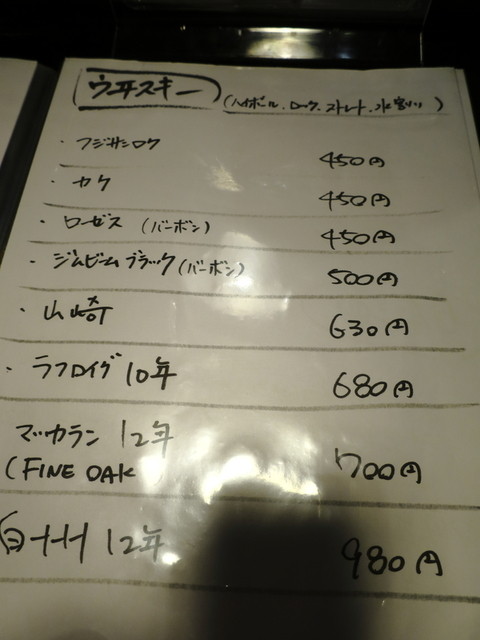 ウヰスキー (ハイボール、ロック、ストレート、水割り)
・フジサンロク 450円
・カク 450円
・ローゼス (バーボン) 450円
・ジムビームブラック (バーボン) 500円
・山崎 630円
・ラフロイグ 10年 680円
マッカラン 12年
(FINE OAK 700円
白州 12年 980円